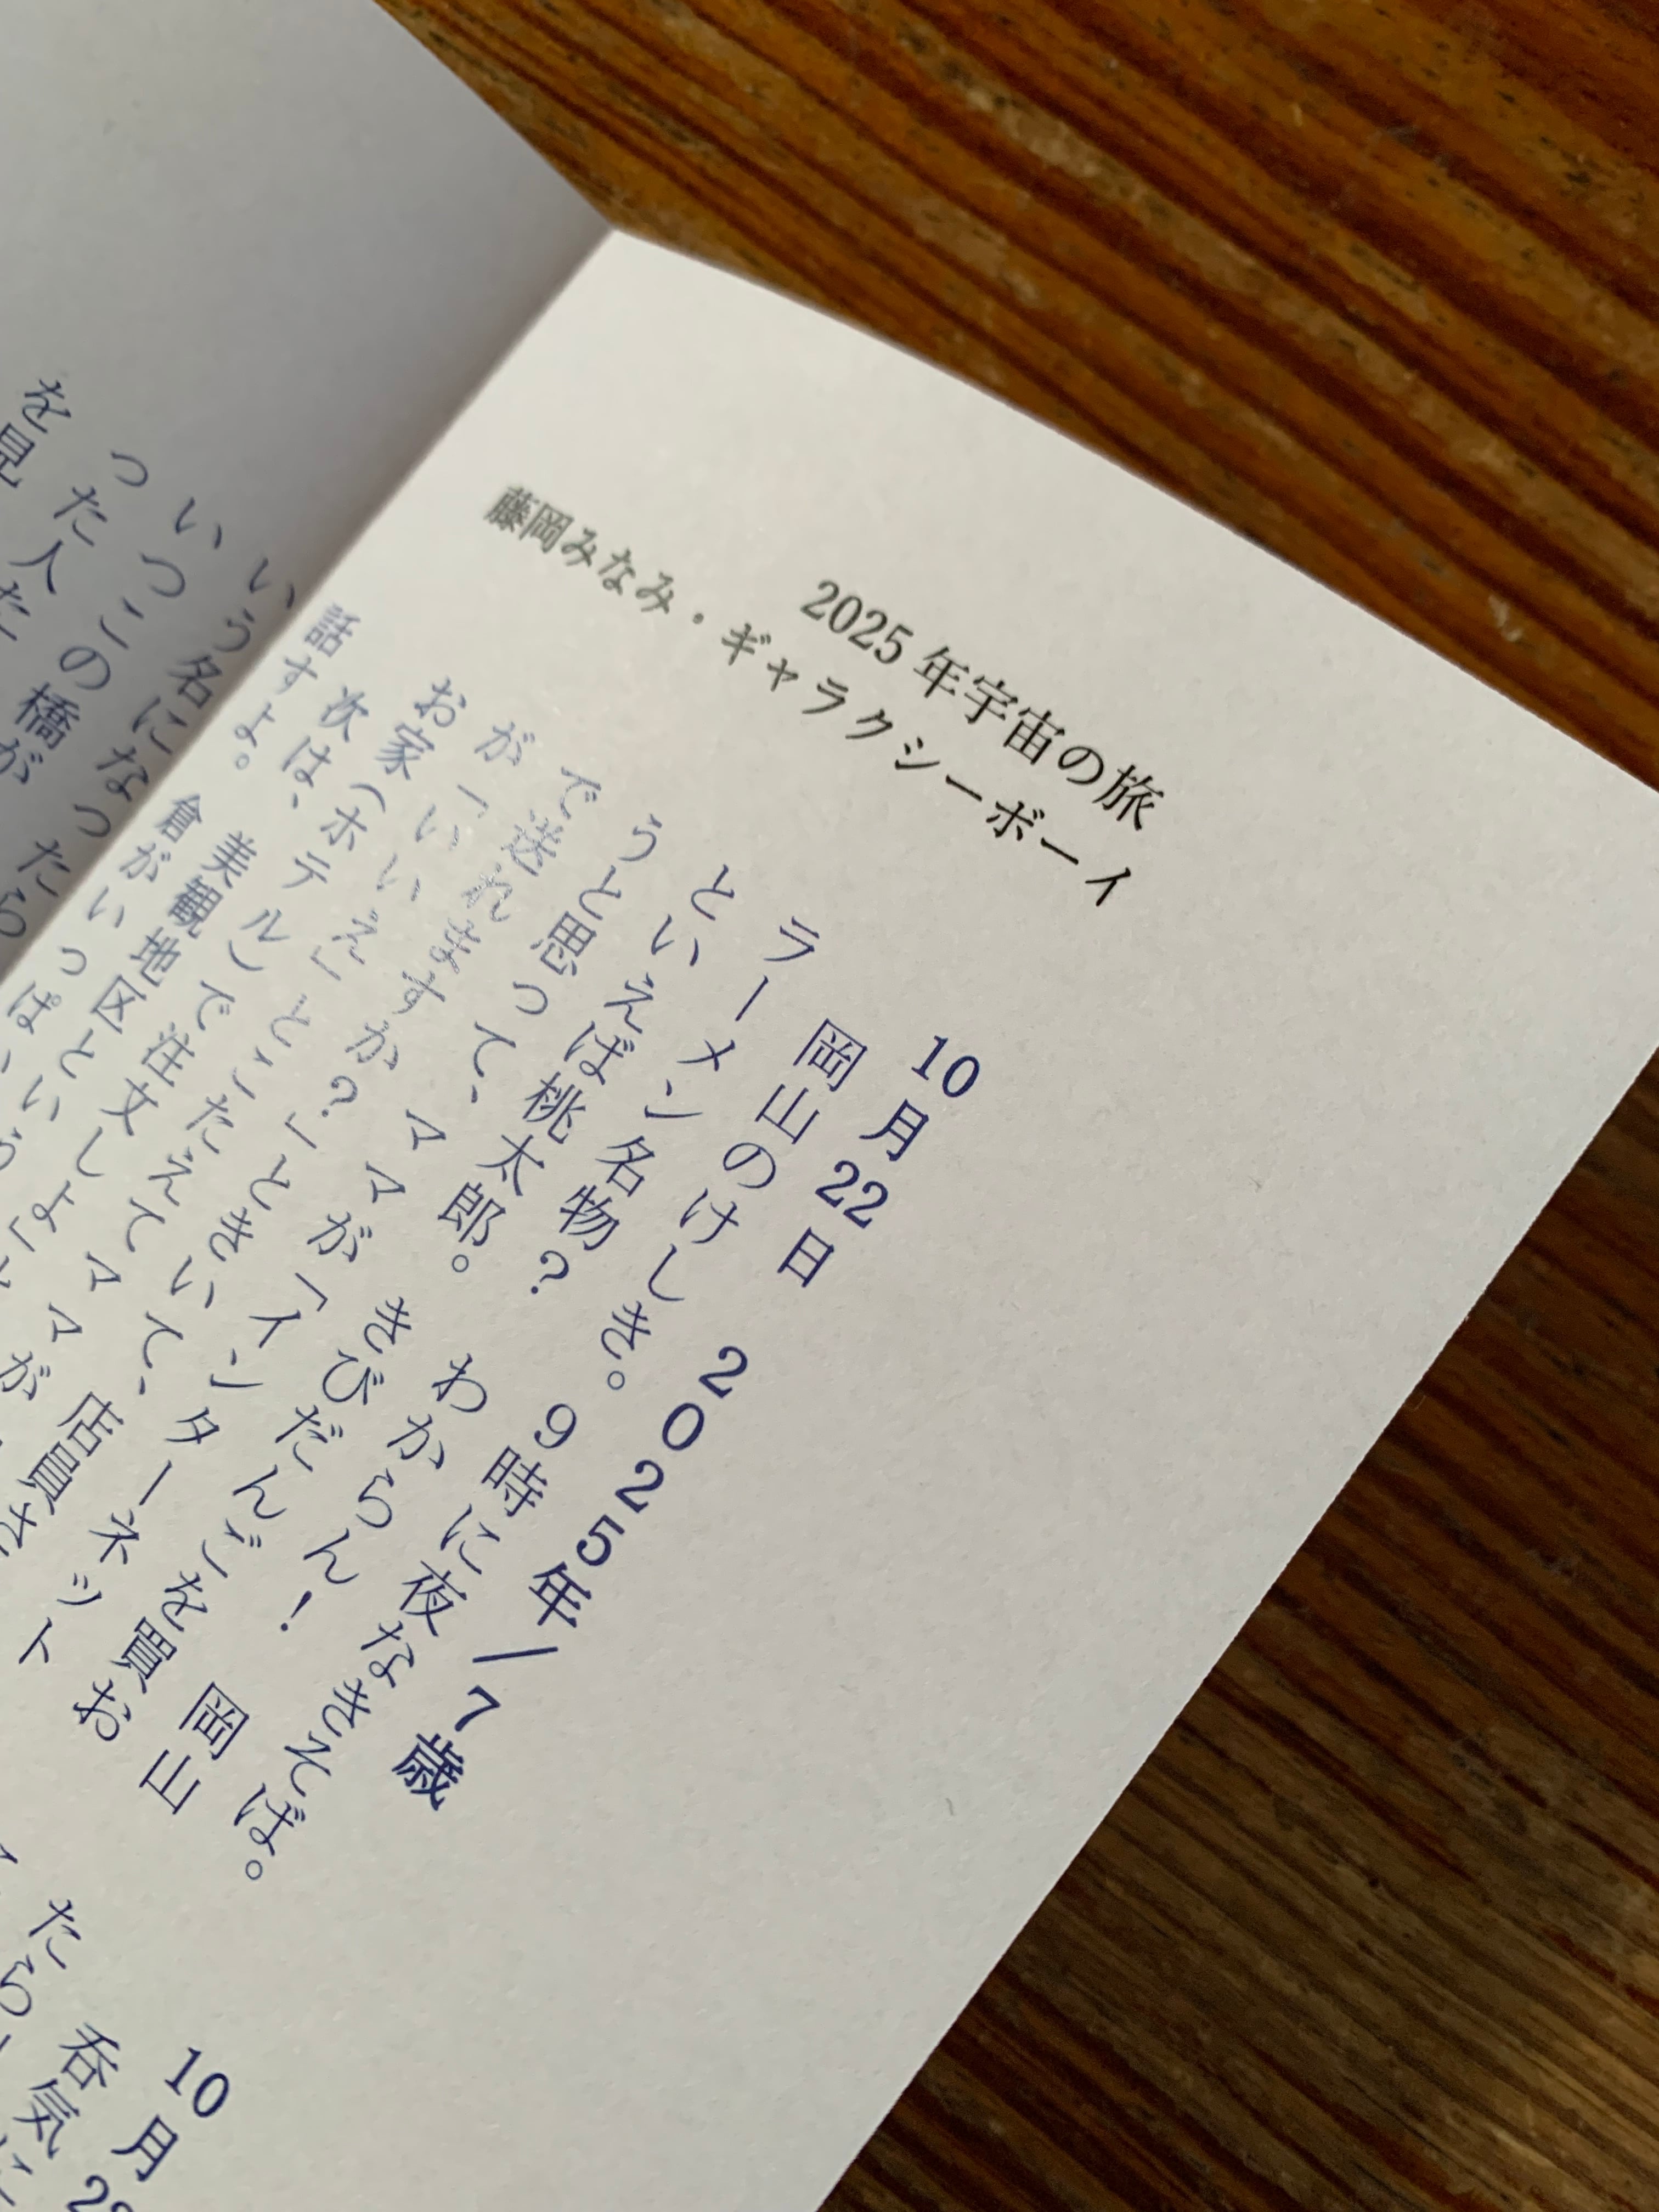 2025年宇宙の旅
藤岡みなみ・ギャラクシーボーイ
10月22日 2025年/7歳
岡山のけしき。9時に夜なきそば。
ラーメン名物? わからん! 岡山
といえば桃太郎。きびだんごを買お
うと思って、ママが「インターネット
で送れますか?」ときいて、店員さ
が「いいえ」とこたえてママが
お家(ホテル)で注文しよ」
次は、美観地区という
話すよ。倉がいっぱい
10月
呑気に
たら
いう名になったら
いつこの橋が
った人だ
を見